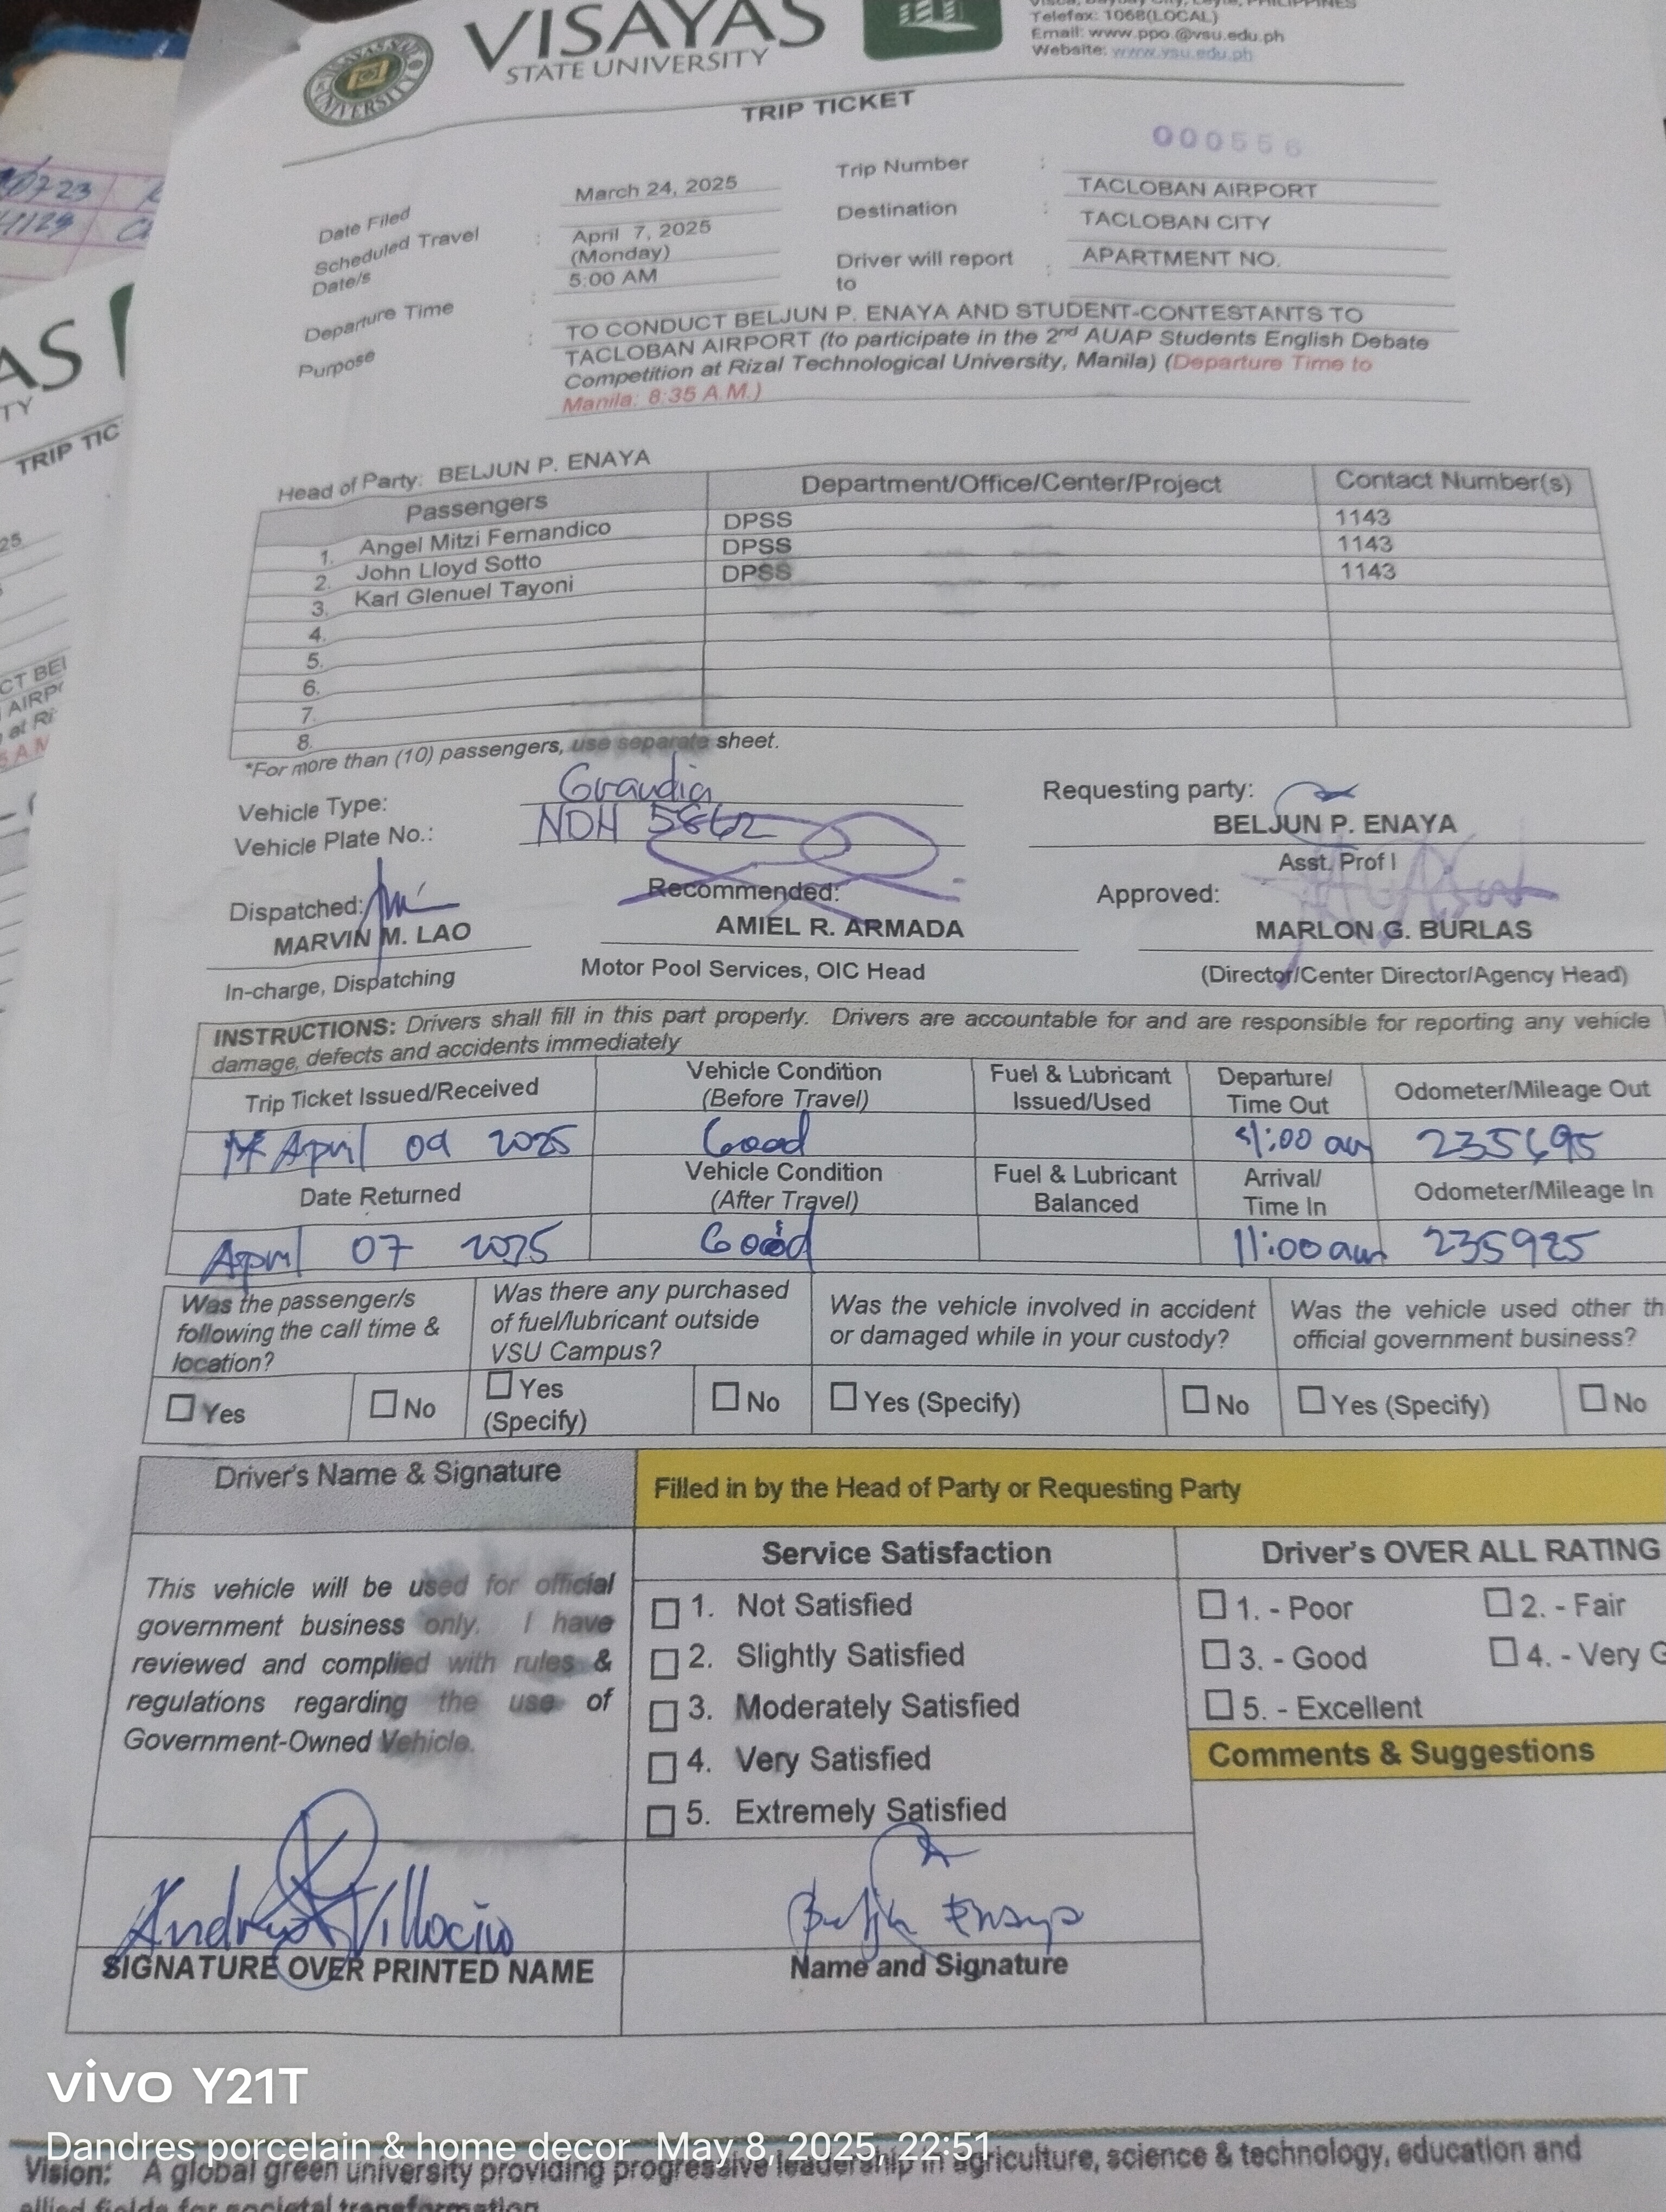 VISAYAS
STATE UNIVERSITY
Telefax: 1068(LOCAL)
Email: www.ppo.@vsu.edu.ph
Website: www.vsu.edu.ph
TRIP TICKET
000556
Date Filed
March 24, 2025
Trip Number :
TACLOBAN AIRPORT
Scheduled Travel Date/s :
April 7, 2025
(Monday)
Destination :
TACLOBAN CITY
Departure Time :
5:00 AM
Driver will report to :
APARTMENT NO.
Purpose :
TO CONDUCT BELJUN P. ENAYA AND STUDENT-CONTESTANTS TO
TACLOBAN AIRPORT (to participate in the 2nd AUAP Students English Debate
Competition at Rizal Technological University, Manila) (Departure Time to
Manila: 8:35 A.M.)
Head of Party: BELJUN P. ENAYA
Passengers Department/Office/Center/Project Contact Number(s)
1. Angel Mitzi Fernandico DPSS 1143
2. John Lloyd Sotto DPSS 1143
3. Karl Glenuel Tayoni DPSS 1143
4.
5.
6.
7.
8.
*For more than (10) passengers, use separate sheet.
Vehicle Type: Grandia
Vehicle Plate No.: NDH 5862
Requesting party:
BELJUN P. ENAYA
Asst. Prof I
Dispatched: Recommended: Approved:
MARVIN M. LAO AMIEL R. ARMADA MARLON G. BURLAS
In-charge, Dispatching Motor Pool Services, OIC Head (Director/Center Director/Agency Head)
INSTRUCTIONS: Drivers shall fill in this part properly. Drivers are accountable for and are responsible for reporting any vehicle
damage, defects and accidents immediately
Trip Ticket Issued/Received Vehicle Condition (Before Travel) Fuel & Lubricant Issued/Used Departure/ Time Out Odometer/Mileage Out
April 2025 Good :00 am
Date Returned Vehicle Condition (After Travel) Fuel & Lubricant Balanced Arrival/ Time In Odometer/Mileage In
April 07 2025 Good 11:00 am 235925
Was the passenger/s following the call time & location?
Was there any purchased of fuel/lubricant outside VSU Campus?
Was the vehicle involved in accident or damaged while in your custody?
Was the vehicle used other th
official government business?
Yes No Yes (Specify) No Yes (Specify) No Yes (Specify) No
Driver's Name & Signature
Filled in by the Head of Party or Requesting Party
This vehicle will be used for official
government business only. I have
reviewed and complied with rules &
regulations regarding the use of
Government-Owned Vehicle.
Service Satisfaction
1. Not Satisfied
2. Slightly Satisfied
3. Moderately Satisfied
4. Very Satisfied
5. Extremely Satisfied
Driver's OVER ALL RATING
1. - Poor 2. - Fair
3. - Good 4. - Very G
5. - Excellent
Comments & Suggestions
Enaya
SIGNATURE OVER PRINTED NAME
Name and Signature
vivo Y21T
Dandres porcelain & home decor May 8, 2025, 22:51
Vision: A global green university providing progressive leadership in agriculture, science & technology, education and
allied fields for societal transformation